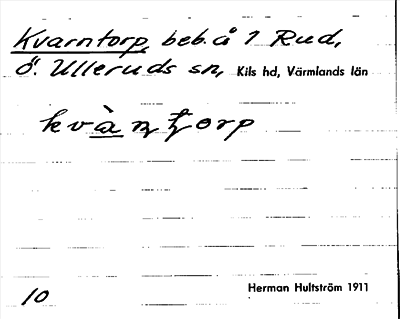 Kvarntorp, beb. å 1 Rud,
Ö. Ulleruds sn, Kils hd, Värmlands län
kvàṇṭorp
10 Herman Hultström 1911